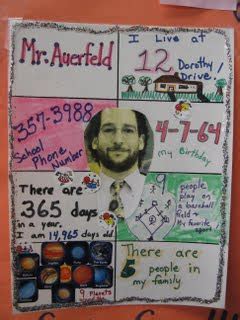 Mr. Auerfeld
I Live at
12
Dorothy
Drive.
357-3988
School
Phone
Number
4-7-64
my Birthday
There are
365 days
in a year.
I am 14,965 days old
9
people
play on
a baseball
field
My favorite
sport.
9 planets
There are
5
people in
my family